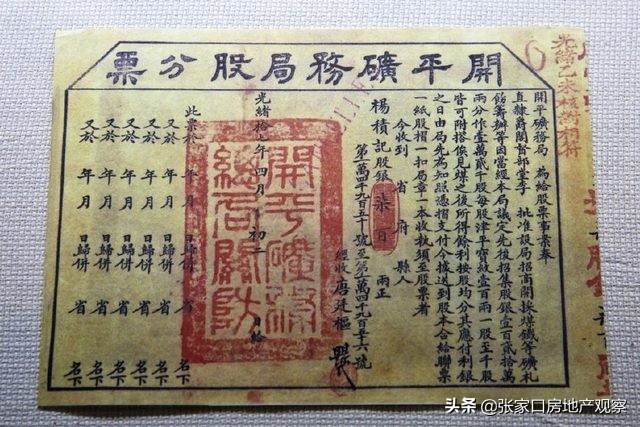 開平礦務局股分票
光緒乙未核對相符
開平礦務局 為給股票事案奉
直隸爵閣督部堂李 批准設局招商開採煤鐵等礦札
飭籌辦等因當經本局議定先後招集股銀壹百貳拾萬
兩分作壹萬貳千股每股津平寶紋壹百兩一股至千股
皆可附搭俟見煤之後所得餘利按股均分其應付利銀
之日由局先為知照憑摺支付今據送到股本合給聯票
一紙股摺一扣局章一本收執須至股票者
今收到 省 府 縣人
楊積記股銀 柒百 兩正
第一萬四千九百五十號至第一萬四千九百五十六號
經收 唐廷樞
開平礦務
總局關防
光緒拾 年四月 初二 日給
此票於 年 月 日歸併 省 名下
又於 年 月 日歸併 省 名下
又於 年 月 日歸併 省 名下
又於 年 月 日歸併 省 名下
又於 年 月 日歸併 省 名下
又於 年 月 日歸併 省 名下
头条 @张家口房地产观察